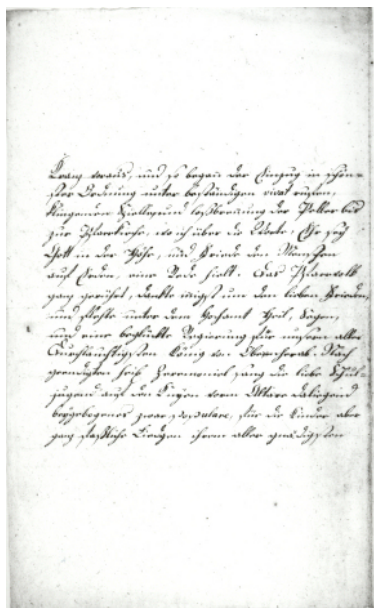 Kranz voraus, und so begann der Einzug in schön-
ster Ordnung unter beständigen vivat rufen,
klingenden Spielle und losbrennung der Pöller bis
zur Pfarrkirche, wo ich über die Worte, Ehr sey
Gott in der Höhe, und Friede den Menschen
auf Erden, eine Rede hielt. Das Pfarrvolk
ganz gerührt, dankte um den lieben Frieden,
und flehte unter dem Hochamt Heil, Segen,
und eine beglückte Regierung für unsern aller
Durchlauchtigsten König von Oben herab. Nach
geendigten Ceremoniel sang die liebe Schul-
jugend auf den Knyen vorm Altare
zwar populare, für die Kinder aber
ganz Liedgen ihrem aller gnädigsten